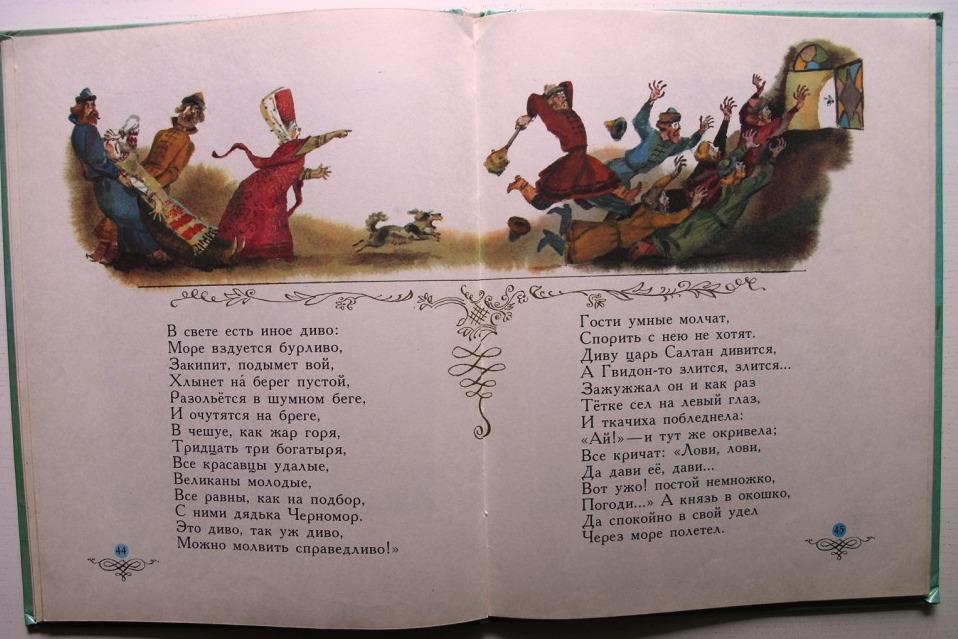 В свете есть иное диво:
Море вздуется бурливо,
Закипит, подымет вой,
Хлынет на́ берег пустой,
Разольётся в шумном беге,
И очутятся на бреге,
В чешуе, как жар горя,
Тридцать три богатыря,
Все красавцы удалые,
Великаны молодые,
Все равны, как на подбор,
С ними дядька Черномор.
Это диво, так уж диво,
Можно молвить справедливо!»
44
Гости умные молчат,
Спорить с нею не хотят.
Диву царь Салтан дивится,
А Гвидон-то злится, злится...
Зажужжал он и как раз
Тётке сел на левый глаз,
И ткачиха побледнела:
«Ай!» — и тут же окривела;
Все кричат: «Лови, лови,
Да дави её, дави...
Вот ужо! постой немножко,
Погоди...» А князь в окошко,
Да спокойно в свой удел
Через море полетел.
45